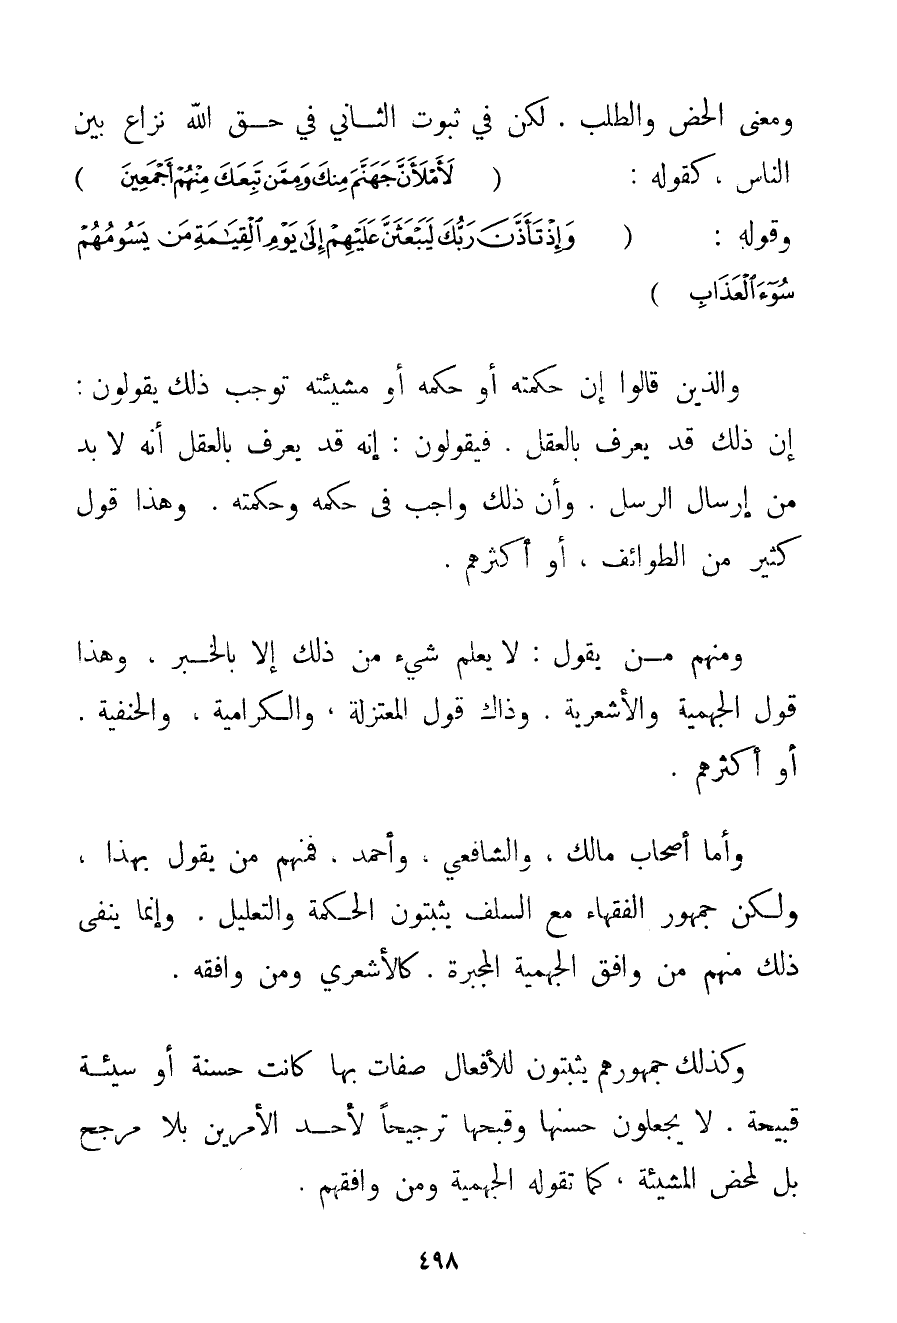 ومعنى الحض والطلب . لكن في ثبوت الثـاني في حـق الله نزاع بين
الناس ، كقوله : ( لَأَمْلَأَنَّ جَهَنَّمَ مِنكَ وَمِمَّن تَبِعَكَ مِنْهُمْ أَجْمَعِينَ )
وقوله : ( وَإِذْ تَأَذَّنَ رَبُّكَ لَيَبْعَثَنَّ عَلَيْهِمْ إِلَىٰ يَوْمِ ٱلْقِيَـٰمَةِ مَن يَسُومُهُمْ
سُوٓءَ ٱلْعَذَابِ )
والذين قالوا إن حكمته أو حكمه أو مشيئته توجب ذلك يقولون :
إن ذلك قد يعرف بالعقل . فيقولون : إنه قد يعرف بالعقل أنه لا بد
من إرسال الرسل . وأن ذلك واجب فى حكمه وحكمته . وهذا قول
كثير من الطوائف ، أو أكثرهم .
ومنهم مـن يقول : لا يعلم شيء من ذلك إلا بالخـبر ، وهذا
قول الجهمية والأشعرية . وذاك قول المعتزلة ، والكرامية ، والحنفية .
أو أكثرهم .
وأما أصحاب مالك ، والشافعي ، وأحمد . فمنهم من يقول بهذا ،
ولكن جمهور الفقهاء مع السلف يثبتون الحكمة والتعليل . وإنما ينفى
ذلك منهم من وافق الجهمية المجبرة . كالأشعري ومن وافقه .
وكذلك جمهورهم يثبتون للأفعال صفات بها كانت حسنة أو سيئـة
قبيحة . لا يجعلون حسنها وقبحها ترجيحاً لأحـد الأمرين بلا مرجح
بل لمحض المشيئة ، كما تقوله الجهمية ومن وافقهم .
٤٩٨